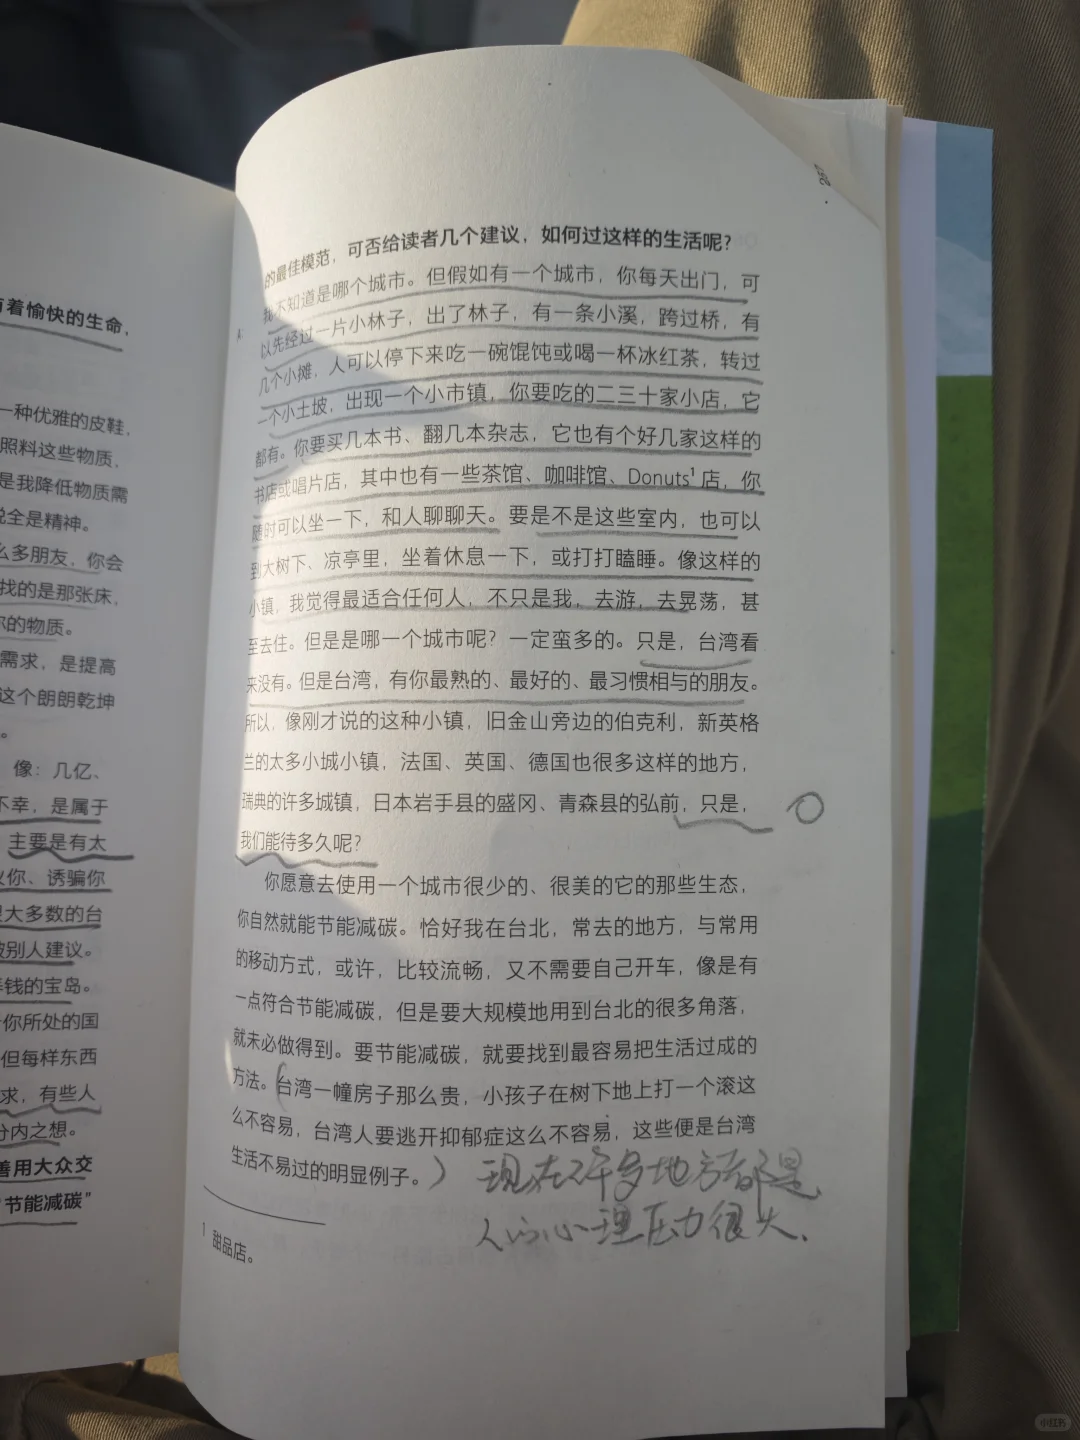 有着愉快的生命，
一种优雅的皮鞋，
照料这些物质，
是我降低物质需
说全是精神。
么多朋友，你会
找的是那张床，
你的物质。
需求，是提高
这个朗朗乾坤
。
像：几亿、
不幸，是属于
主要是有太
义你、诱骗你
是大多数的台
被别人建议。
钱的宝岛。
你所处的国
但每样东西
求，有些人
分内之想。
善用大众交
“节能减碳”
的最佳模范，可否给读者几个建议，如何过这样的生活呢？
A. 我不知道是哪个城市。但假如有一个城市，你每天出门，可
以先经过一片小林子，出了林子，有一条小溪，跨过桥，有
几个小摊，人可以停下来吃一碗馄饨或喝一杯冰红茶，转过
一个小土坡，出现一个小市镇，你要吃的二三十家小店，它
都有。你要买几本书、翻几本杂志，它也有个好几家这样的
书店或唱片店，其中也有一些茶馆、咖啡馆、Donuts¹店，你
随时可以坐一下，和人聊聊天。要是不是这些室内，也可以
到大树下、凉亭里，坐着休息一下，或打打瞌睡。像这样的
小镇，我觉得最适合任何人，不只是我，去游，去晃荡，甚
至去住。但是是哪一个城市呢？一定蛮多的。只是，台湾看
来没有。但是台湾，有你最熟的、最好的、最习惯相与的朋友。
所以，像刚才说的这种小镇，旧金山旁边的伯克利，新英格
兰的太多小城小镇，法国、英国、德国也很多这样的地方，
瑞典的许多城镇，日本岩手县的盛冈、青森县的弘前，只是，
我们能待多久呢？
你愿意去使用一个城市很少的、很美的它的那些生态，
你自然就能节能减碳。恰好我在台北，常去的地方，与常用
的移动方式，或许，比较流畅，又不需要自己开车，像是有
一点符合节能减碳，但是要大规模地用到台北的很多角落，
就未必做得到。要节能减碳，就要找到最容易把生活过成的
方法。（台湾一幢房子那么贵，小孩子在树下地上打一个滚这
么不容易，台湾人要逃开抑郁症这么不容易，这些便是台湾
生活不易过的明显例子。）
现在许多地方都是
人的心理压力很大.
1 甜品店。
小红书